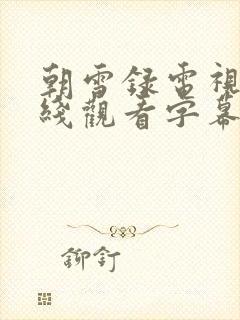 朝雪録電視
綫觀看字幕
鉚釘